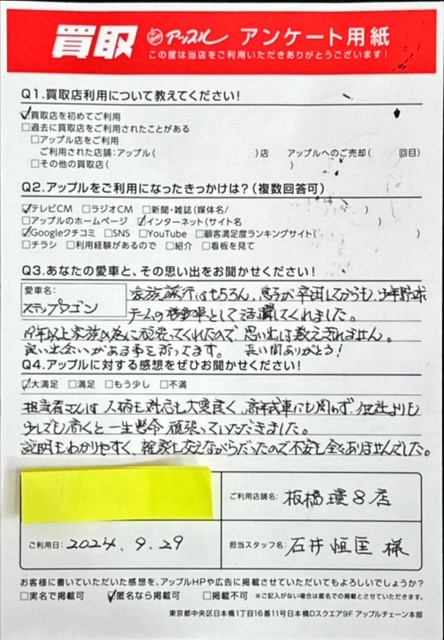 買取 アップル アンケート用紙
この度は当店をご利用いただきありがとうございます!
Q1.買取店利用について教えてください!
☑買取店を初めてご利用
□過去に買取店をご利用されたことがある
□アップル店をご利用
ご利用された店舗:アップル( )店 アップルへのご売却( 回目)
□その他の買取店( )
Q2.アップルをご利用になったきっかけは?(複数回答可)
☑テレビCM □ラジオCM □新聞・雑誌(媒体名/ )
□アップルのホームページ ☑インターネット(サイト名 )
☑Googleクチコミ □SNS □YouTube □顧客満足度ランキングサイト( )
□チラシ □利用経験があるので □紹介 □看板を見て
Q3.あなたの愛車と、その思い出をお聞かせください!
愛車名: ステップワゴン
家族旅行はもちろん、息子が卒団してからも、少年野球
チームの移動車として活躍してくれました。
19年以上家族の為に頑張ってくれたので、思い出は数えきれません。
良い出会いがある事を祈ってます。 長い間ありがとう!
Q4.アップルに対する感想をぜひお聞かせください!
☑大満足 □満足 □もう少し □不満
担当者さんは人柄も対応も大変良く、高年式車にも関わず、他社よりも
少しでも高くと一生懸命頑張っていただきました。
説明もわかりやすく、雑談も交えながらだったので不安も全くありませんでした。
ご利用店舗名: 板橋環8店
ご利用日: 2024.9.29
担当スタッフ名: 石井恒匡 様
お客様に書いていただいた感想を、アップルHPや広告に掲載させていただいてもよろしいでしょうか?
□実名で掲載可 ☑匿名なら掲載可 □掲載不可 ※ご記入がない場合は匿名での掲載とさせていただきます。
東京都中央区日本橋1丁目16番11号日本橋Dスクエア9F アップルチェーン本部